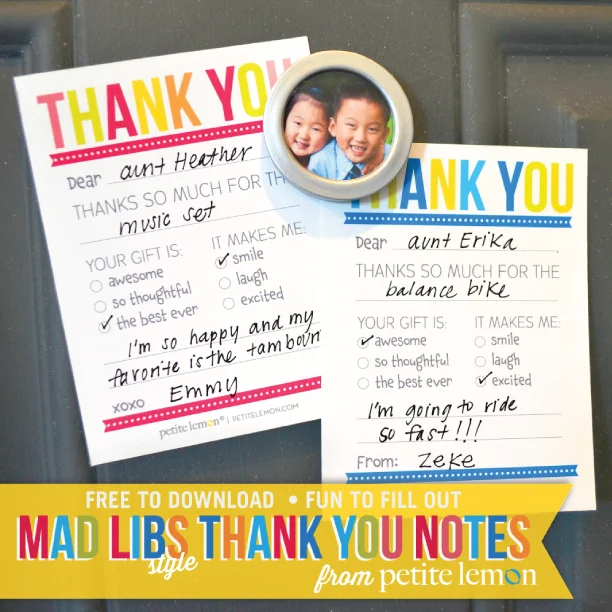 THANK YOU
Dear aunt Heather
THANKS SO MUCH FOR TH
music set
YOUR GIFT IS:
awesome
so thoughtful
the best ever
IT MAKES ME:
smile
laugh
excited
I'm so happy and my
favorite is the tambour
xoxo Emmy
petite lemon® | PETITELEMON.COM
THANK YOU
Dear aunt Erika
THANKS SO MUCH FOR THE
balance bike
YOUR GIFT IS:
awesome
so thoughtful
the best ever
IT MAKES ME:
smile
laugh
excited
I'm going to ride
so fast!!!
From: Zeke
FREE TO DOWNLOAD • FUN TO FILL OUT
MAD LIBS THANK YOU NOTES
style
from petite lemon